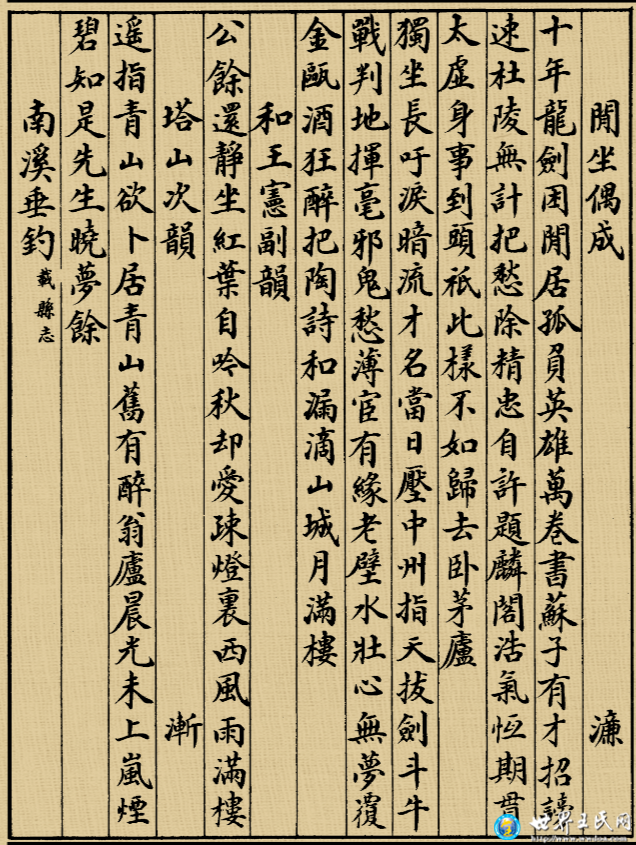 閒坐偶成 濂
十年龍劍困閒居孤負英雄萬卷書蘇子有才招謗
速杜陵無計把愁除精忠自許題麟閣浩氣恆期貫
太虛身事到頭祇此樣不如歸去卧茅廬
獨坐長吁淚暗流才名當日壓中州指天拔劍斗牛
戰判地揮毫邪鬼愁薄宦有緣老壁水壯心無夢覆
金甌酒狂醉把陶詩和漏滴山城月滿樓
和王憲副韻
公餘還靜坐紅葉自吟秋却愛疎燈裏西風雨滿樓
塔山次韻 漸
遥指青山欲卜居青山舊有醉翁廬晨光未上嵐煙
碧知是先生曉夢餘
南溪垂釣 載縣志
世界王氏网